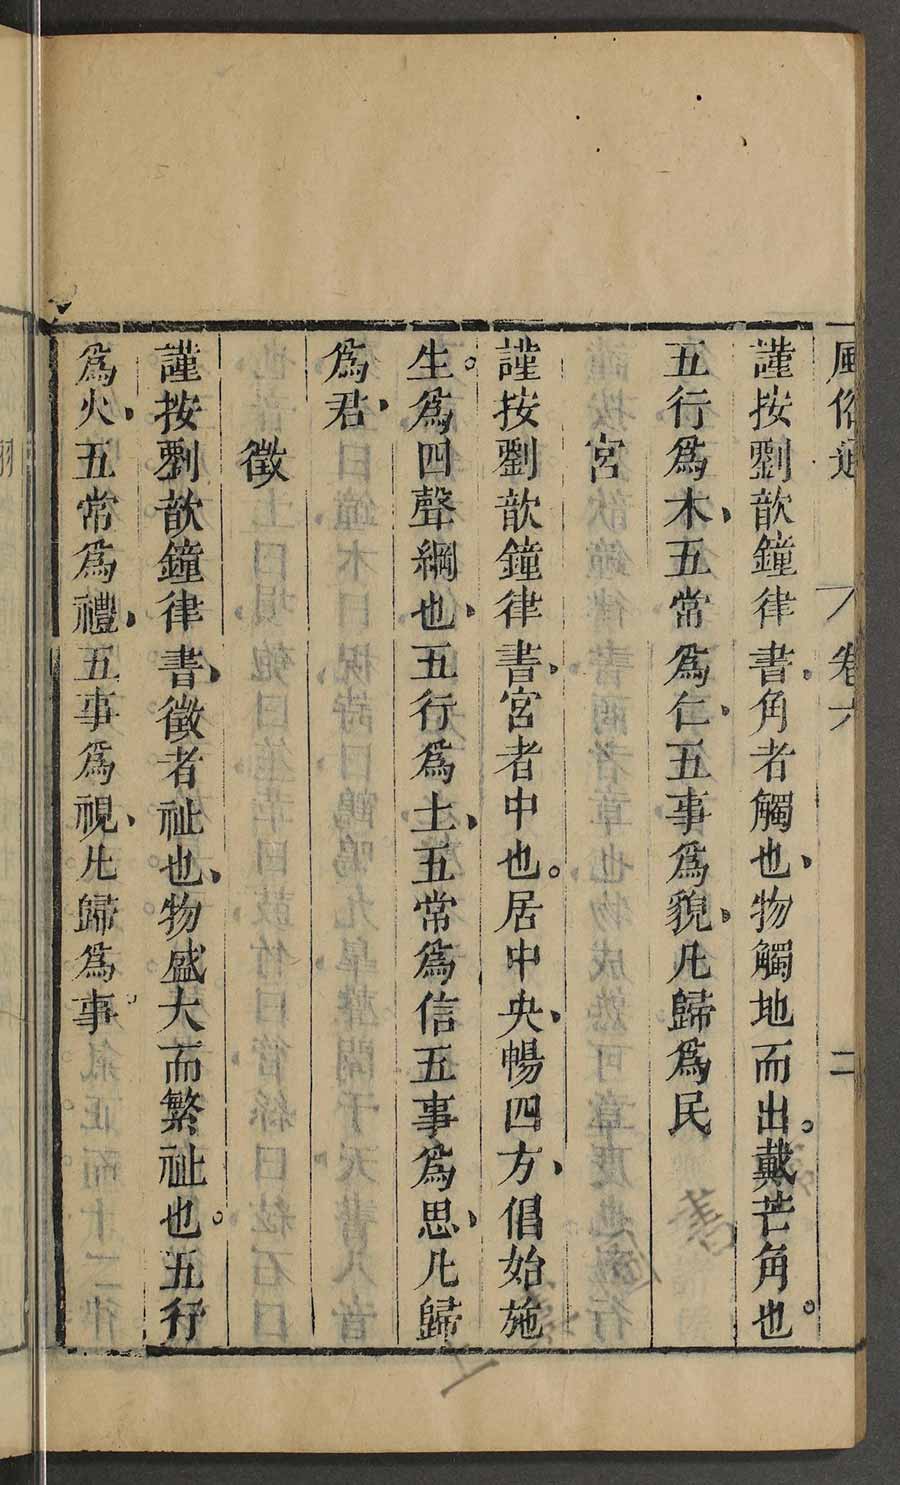 風俗通 卷六 二
謹按劉歆鐘律書、角者觸也、物觸地而出。戴芒角也。
五行爲木、五常爲仁、五事爲貌、凡歸爲民
宮
謹按劉歆鐘律書、宮者中也。居中央、暢四方、倡始施
生。爲四聲綱也、五行爲土、五常爲信五事爲思、凡歸
爲君、
徵
謹按劉歆鐘律書、徵者祉也、物盛大而繁祉也。五行
爲火、五常爲禮、五事爲視、凡歸爲事。